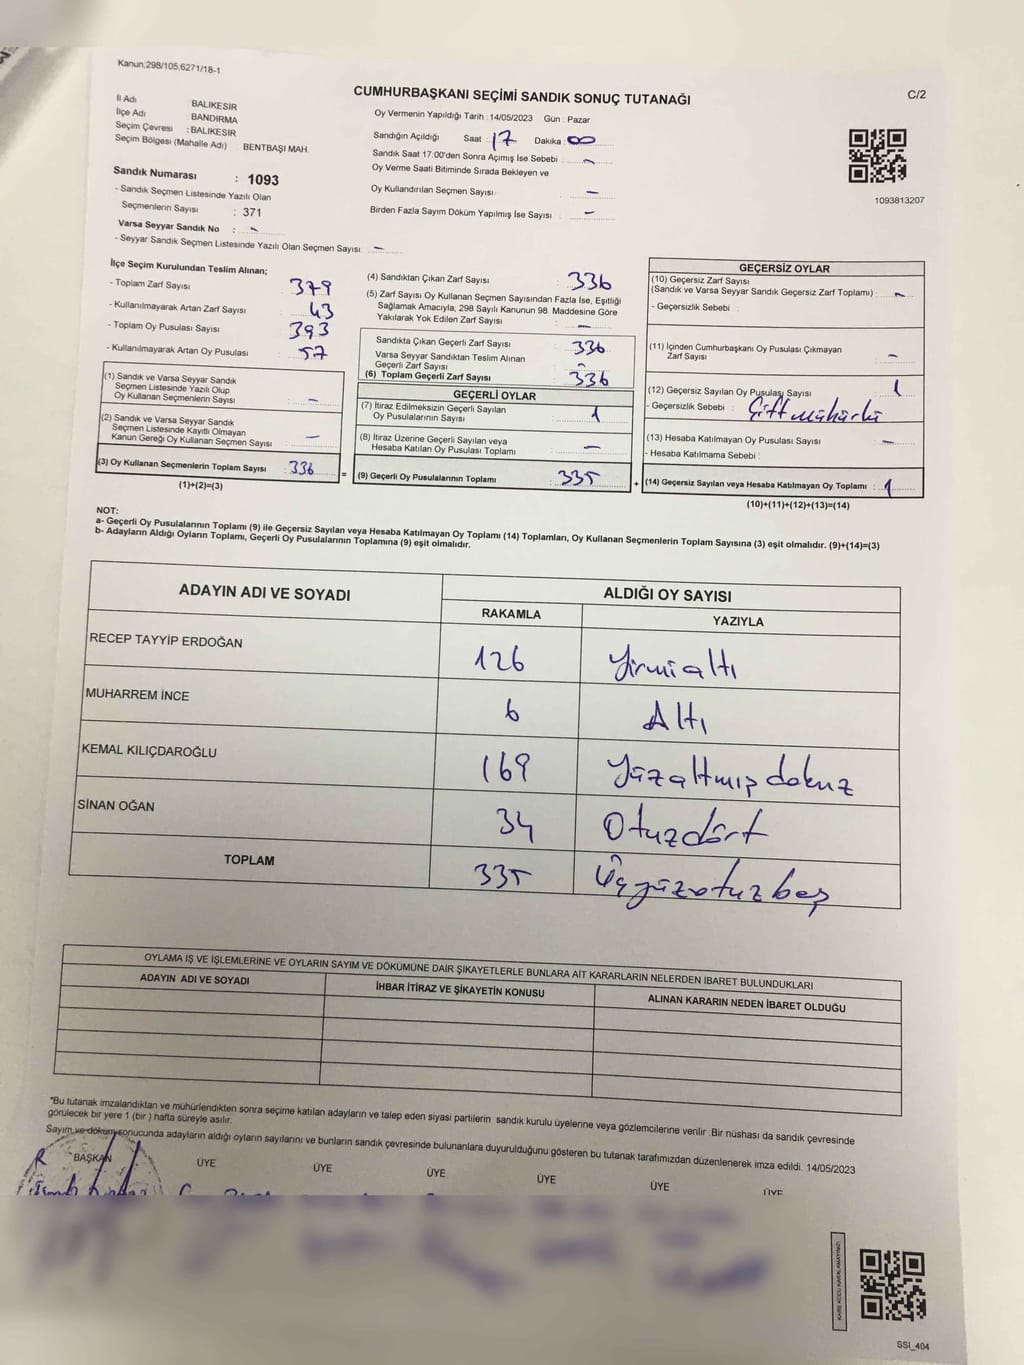 Kanun;298/105;6271/18-1
C/2
CUMHURBAŞKANI SEÇİMİ SANDIK SONUÇ TUTANAĞI
İl Adı BALIKESİR
İlçe Adı BANDIRMA
Seçim Çevresi : BALIKESİR
Seçim Bölgesi (Mahalle Adı) BENTBAŞI MAH.
Sandık Numarası : 1093
- Sandık Seçmen Listesinde Yazılı Olan
Seçmenlerin Sayısı : 371
Varsa Seyyar Sandık No : -
- Seyyar Sandık Seçmen Listesinde Yazılı Olan Seçmen Sayısı: -
Oy Vermenin Yapıldığı Tarih : 14/05/2023 Gün : Pazar
Sandığın Açıldığı Saat : 17 Dakika : 00
Sandık Saat 17:00'den Sonra Açımış İse Sebebi : -
Oy Verme Saati Bitiminde Sırada Bekleyen ve
Oy Kullandırılan Seçmen Sayısı : -
Birden Fazla Sayım Döküm Yapılmış İse Sayısı : -
1093813207
İlçe Seçim Kurulundan Teslim Alınan;
- Toplam Zarf Sayısı 379
- Kullanılmayarak Artan Zarf Sayısı 43
- Toplam Oy Pusulası Sayısı 393
- Kullanılmayarak Artan Oy Pusulası 57
(1) Sandık ve Varsa Seyyar Sandık
Seçmen Listesinde Yazılı Olup
Oy Kullanan Seçmenlerin Sayısı : -
(2) Sandık ve Varsa Seyyar Sandık
Seçmen Listesinde Kayıtlı Olmayan
Kanun Gereği Oy Kullanan Seçmen Sayısı : -
(3) Oy Kullanan Seçmenlerin Toplam Sayısı : 336
(1)+(2)=(3)
(4) Sandıktan Çıkan Zarf Sayısı : 336
(5) Zarf Sayısı Oy Kullanan Seçmen Sayısından Fazla İse, Eşitliği
Sağlamak Amacıyla, 298 Sayılı Kanunun 98. Maddesine Göre
Yakılarak Yok Edilen Zarf Sayısı : -
Sandıkta Çıkan Geçerli Zarf Sayısı : 336
Varsa Seyyar Sandıktan Teslim Alınan
Geçerli Zarf Sayısı : -
(6) Toplam Geçerli Zarf Sayısı : 336
GEÇERLİ OYLAR
(7) İtiraz Edilmeksizin Geçerli Sayılan
Oy Pusulalarının Sayısı : 1
(8) İtiraz Üzerine Geçerli Sayılan veya
Hesaba Katılan Oy Pusulası Toplamı : -
= (9) Geçerli Oy Pusulalarının Toplamı : 335 +
GEÇERSİZ OYLAR
(10) Geçersiz Zarf Sayısı
(Sandık ve Varsa Seyyar Sandık Geçersiz Zarf Toplamı) : -
- Geçersizlik Sebebi :
(11) İçinden Cumhurbaşkanı Oy Pusulası Çıkmayan
Zarf Sayısı : -
(12) Geçersiz Sayılan Oy Pusulası Sayısı : 1
- Geçersizlik Sebebi : Çift mühürlü
(13) Hesaba Katılmayan Oy Pusulası Sayısı : -
- Hesaba Katılmama Sebebi :
(14) Geçersiz Sayılan veya Hesaba Katılmayan Oy Toplamı : 1
(10)+(11)+(12)+(13)=(14)
NOT:
a- Geçerli Oy Pusulalarının Toplamı (9) ile Geçersiz Sayılan veya Hesaba Katılmayan Oy Toplamı (14) Toplamları, Oy Kullanan Seçmenlerin Toplam Sayısına (3) eşit olmalıdır. (9)+(14)=(3)
b- Adayların Aldığı Oyların Toplamı, Geçerli Oy Pusulalarının Toplamına (9) eşit olmalıdır.
ADAYIN ADI VE SOYADI ALDIĞI OY SAYISI
RAKAMLA YAZIYLA
RECEP TAYYİP ERDOĞAN 126 Yirmialtı
MUHARREM İNCE 6 Altı
KEMAL KILIÇDAROĞLU 169 Yüzaltmış dokuz
SİNAN OĞAN 34 Otuzdört
TOPLAM 335 Üçyüzotuzbeş
OYLAMA İŞ VE İŞLEMLERİNE VE OYLARIN SAYIM VE DÖKÜMÜNE DAİR ŞİKAYETLERLE BUNLARA AİT KARARLARIN NELERDEN İBARET BULUNDUKLARI
ADAYIN ADI VE SOYADI İHBAR İTİRAZ VE ŞİKAYETİN KONUSU ALINAN KARARIN NEDEN İBARET OLDUĞU
*Bu tutanak imzalandıktan ve mühürlendikten sonra seçime katılan adayların ve talep eden siyasi partilerin sandık kurulu üyelerine veya gözlemcilerine verilir. Bir nüshası da sandık çevresinde
görülecek bir yere 1 (bir) hafta süreyle asılır.
Sayım ve döküm sonucunda adayların aldığı oyların sayılarını ve bunların sandık çevresinde bulunanlara duyurulduğunu gösteren bu tutanak tarafımızdan düzenlenerek imza edildi. 14/05/2023
BAŞKAN ÜYE ÜYE ÜYE ÜYE ÜYE ÜYE
SSI_404